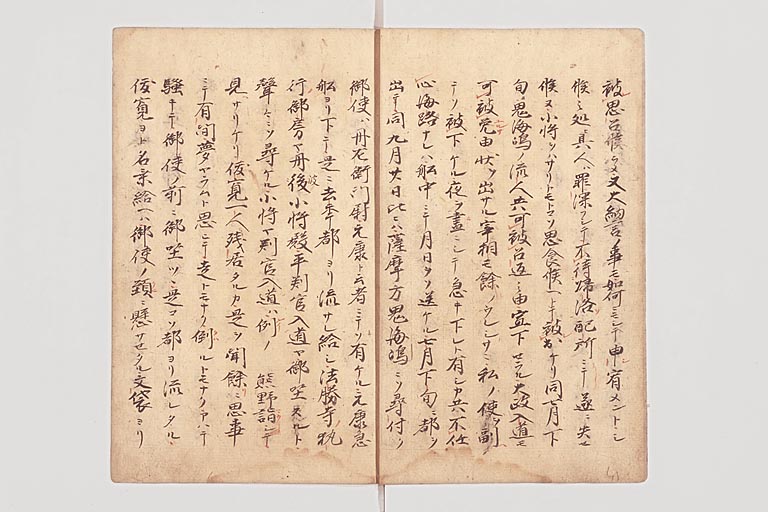 被思召候ツメ又大納言ノ事モ如何ニモシテ申宥メントシ
候シ処ニ其人ハ罪深クシテ不待帰洛配所ニテ遂ニ失セ
候ヌ小将ヲサリトモトコソ思食候ヘト被申ケリ同七月下
旬ノ鬼海嶋ノ流人共可被召返之由宣下セラル大政入道モ
可被免由状ヲ出サル宰相モ餘ノウレシサニ私ノ使ヲ副
テソ被下ケル夜ヲ盡ニシテ急キ下レト有シカ共不任
心海路ナレハ船中ニテ月日ヲソ送ケル七月下旬ニ都ヲ
出テ同九月廿日比ニハ薩摩方鬼海嶋ニソ尋付ク
御使ハ丹左衛門尉元康ト云者ニテソ有ケル元康急
船ヨリ下テ是ニ去年都ヨリ流サレ給シ法勝寺執
行御房ヤ丹波小将殿平判官入道ヤ御坐スルト
聲々ニソ尋ケル小将ヤ判官入道ハ例ノ熊野詣シテ
見ヘサリケリ俊寛一人残居タルカ是ヲ聞餘ニ思事
ニテ有間夢ヤラムト思ニテ走トモナク倒ルトモナクアハテ
騒キテ御使ノ前ニ御坐ツヽ是コソ都ヨリ流レタル
俊寛ヨト名乗給ヘハ御使ノ頚ニ懸サセタル文袋ヨリ